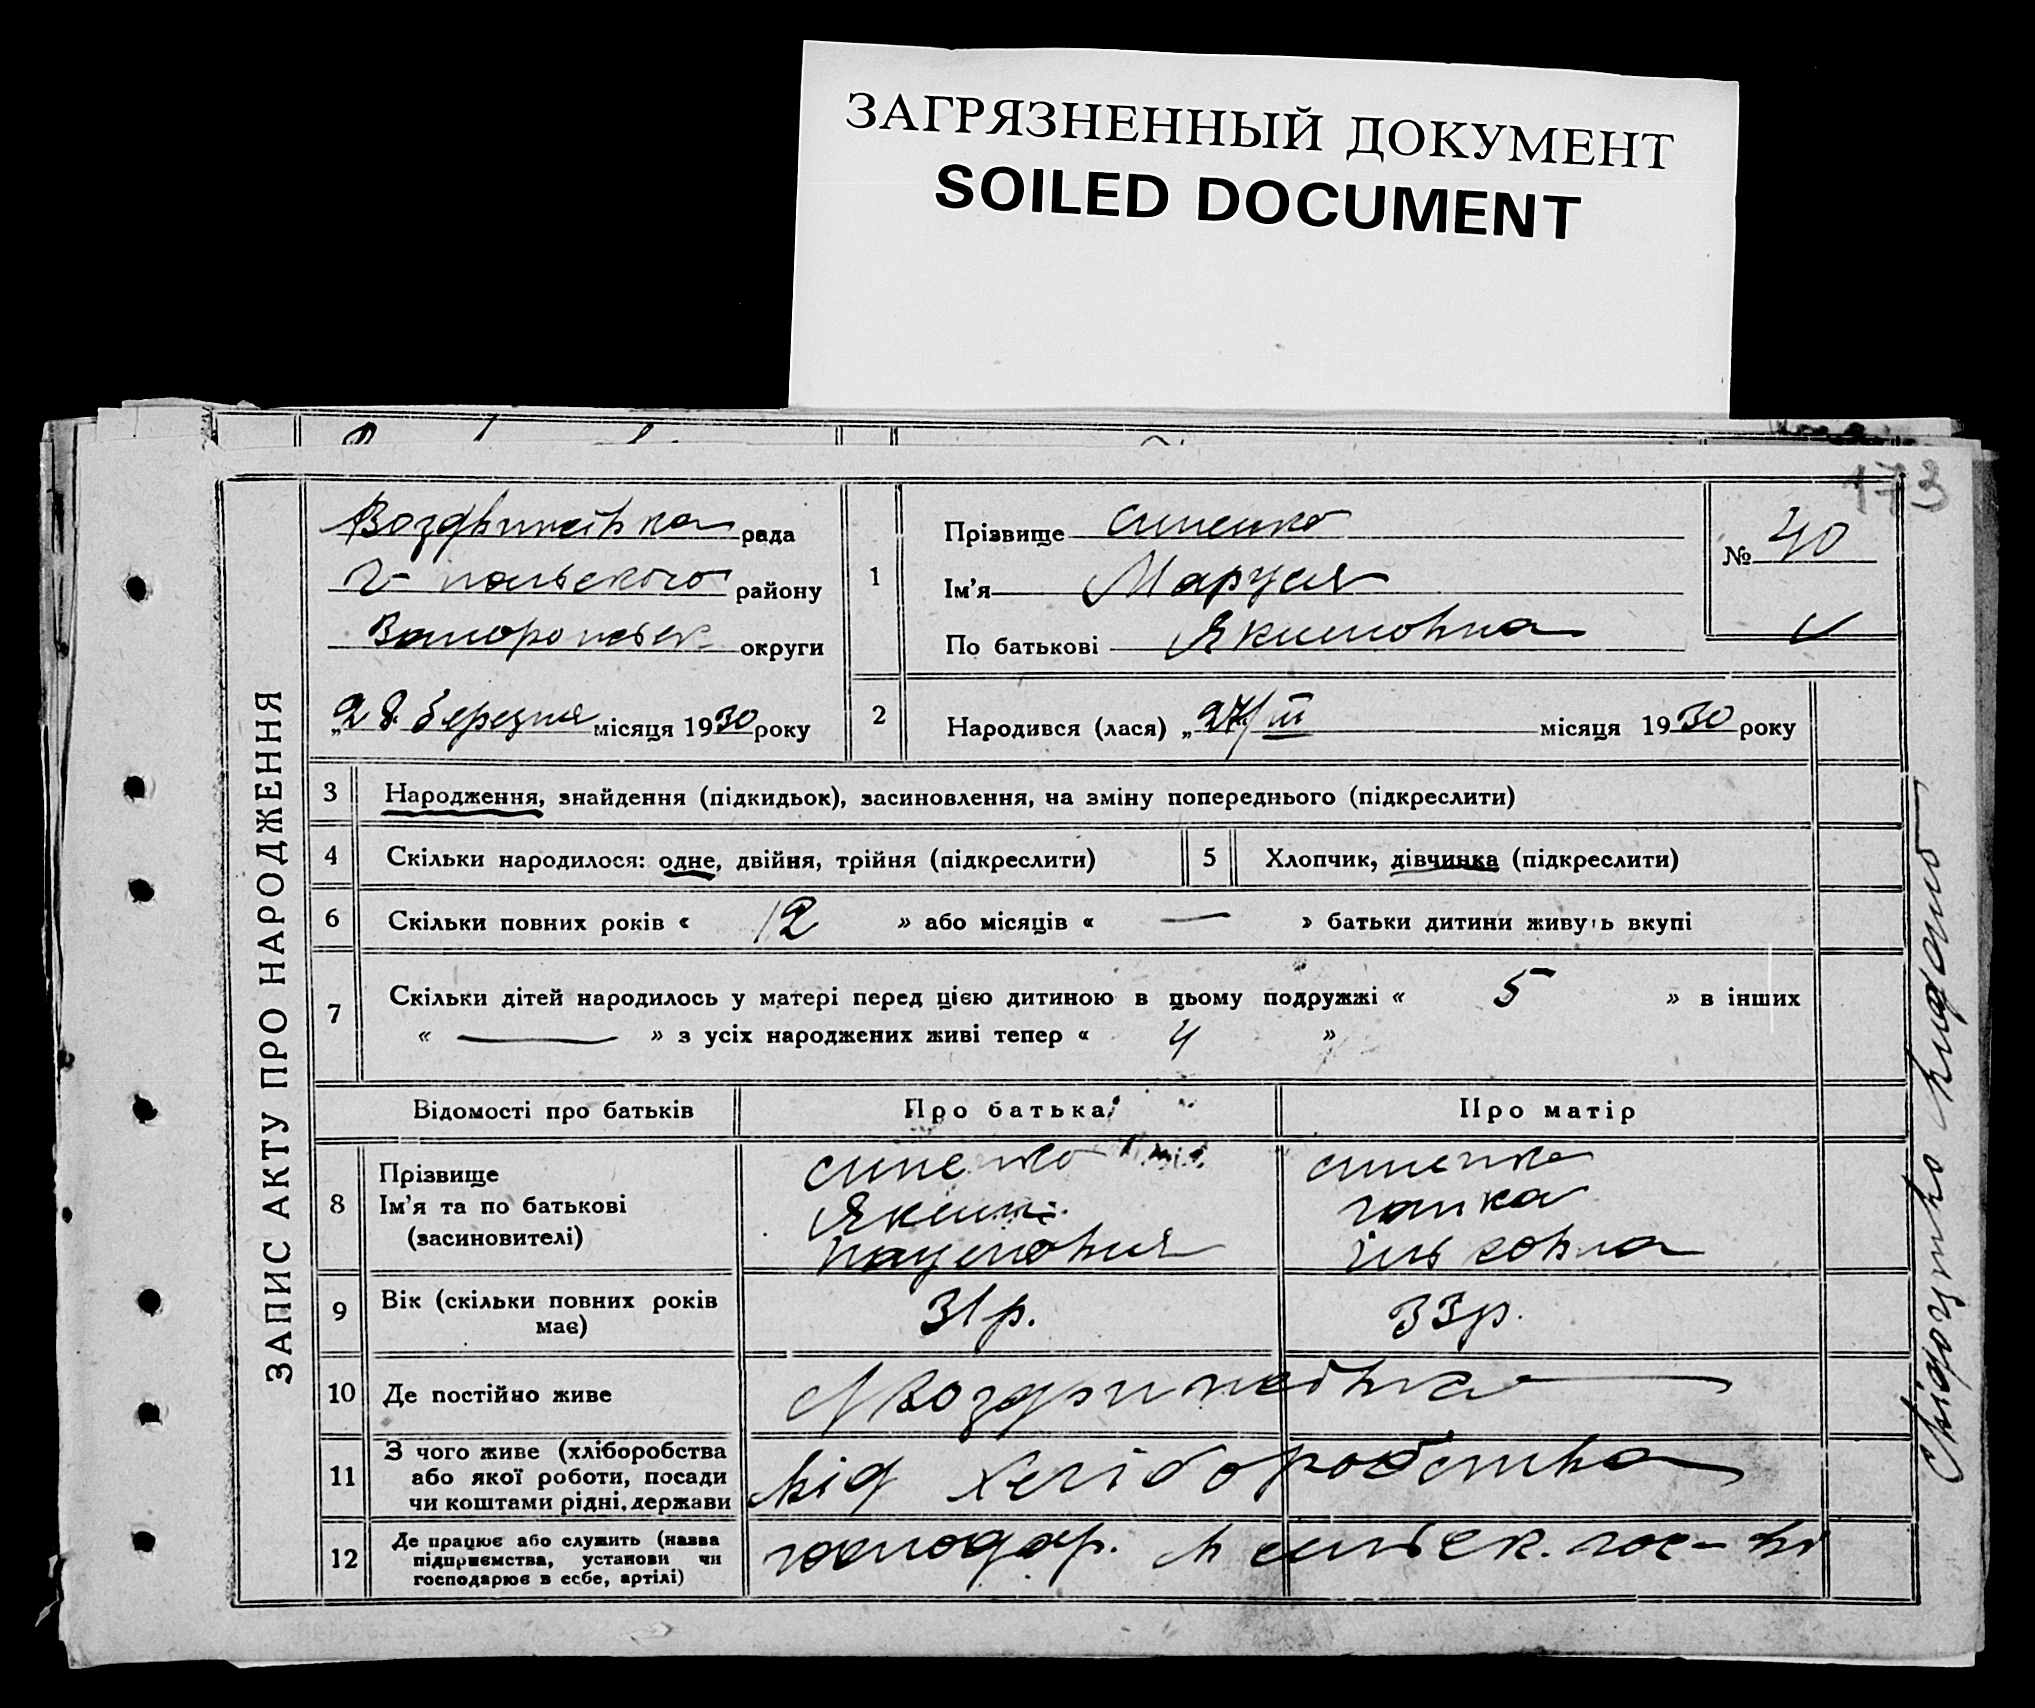 ЗАГРЯЗНЕННЫЙ ДОКУМЕНТ
SOILED DOCUMENT
173
ЗАПИС АКТУ ПРО НАРОДЖЕННЯ
Воздвижівка рада
Г-польского району
Запорожськ. округи
„28 березня місяця 1930 року
1
Прізвище Синенко
Ім'я Маруся
По батькові Якимовна
№ 40
2
Народився (лася) „27/III місяця 1930 року
3 Народження, знайдення (підкидьок), засиновлення, на зміну попереднього (підкреслити)
4 Скільки народилося: одне, двійня, трійня (підкреслити)
5 Хлопчик, дівчинка (підкреслити)
6 Скільки повних років « 12 » або місяців « — » батьки дитини живуть вкупі
7 Скільки дітей народилось у матері перед цією дитиною в цьому подружжі « 5 » в інших
« — » з усіх народжених живі тепер « 4 »
Відомості про батьків Про батька Про матір
8 Прізвище
Ім'я та по батькові
(засиновителі)
Синенко
Яким
Синенко
Гапка
9 Вік (скільки повних років
має)
31р. 33р.
10 Де постійно живе
с. Воздвижівка
11 З чого живе (хліборобства
або якої роботи, посади
чи коштами рідні, держави
від хліборобства
12 Де працює або служить (назва
підприємства, установи чи
господарює в себе, артілі)
господар. в сільск. гос-ві
Свідоцтво видано